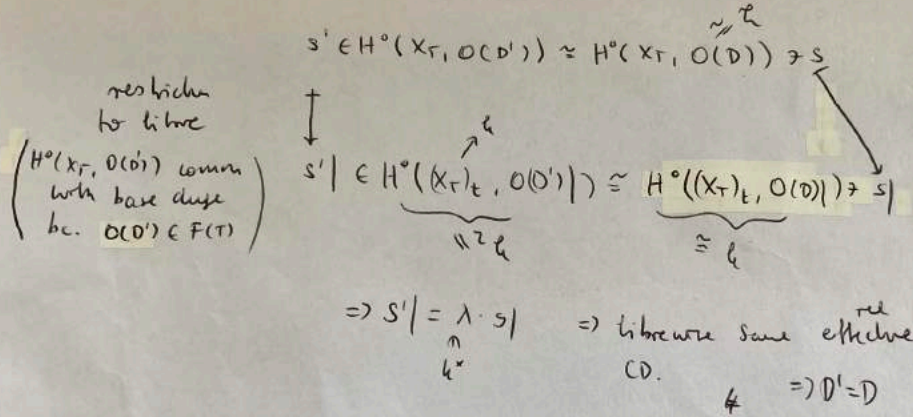 ≈ k
s' ∈ H°(X_T, O(D')) ≃ H°(X_T, O(D)) ∋ s
restriction
to fibre
(H°(X_T, O(D')) comm
with base change
bc. O(D') ∈ F(T))
k
s'| ∈ H°((X_T)_t, O(D')|) ≅ H°((X_T)_t, O(D)|) ∋ s|
≅ k
≅ k
=> s'| = λ · s| => fibrewise same rel effective
k^x
CD.
=> D' = D